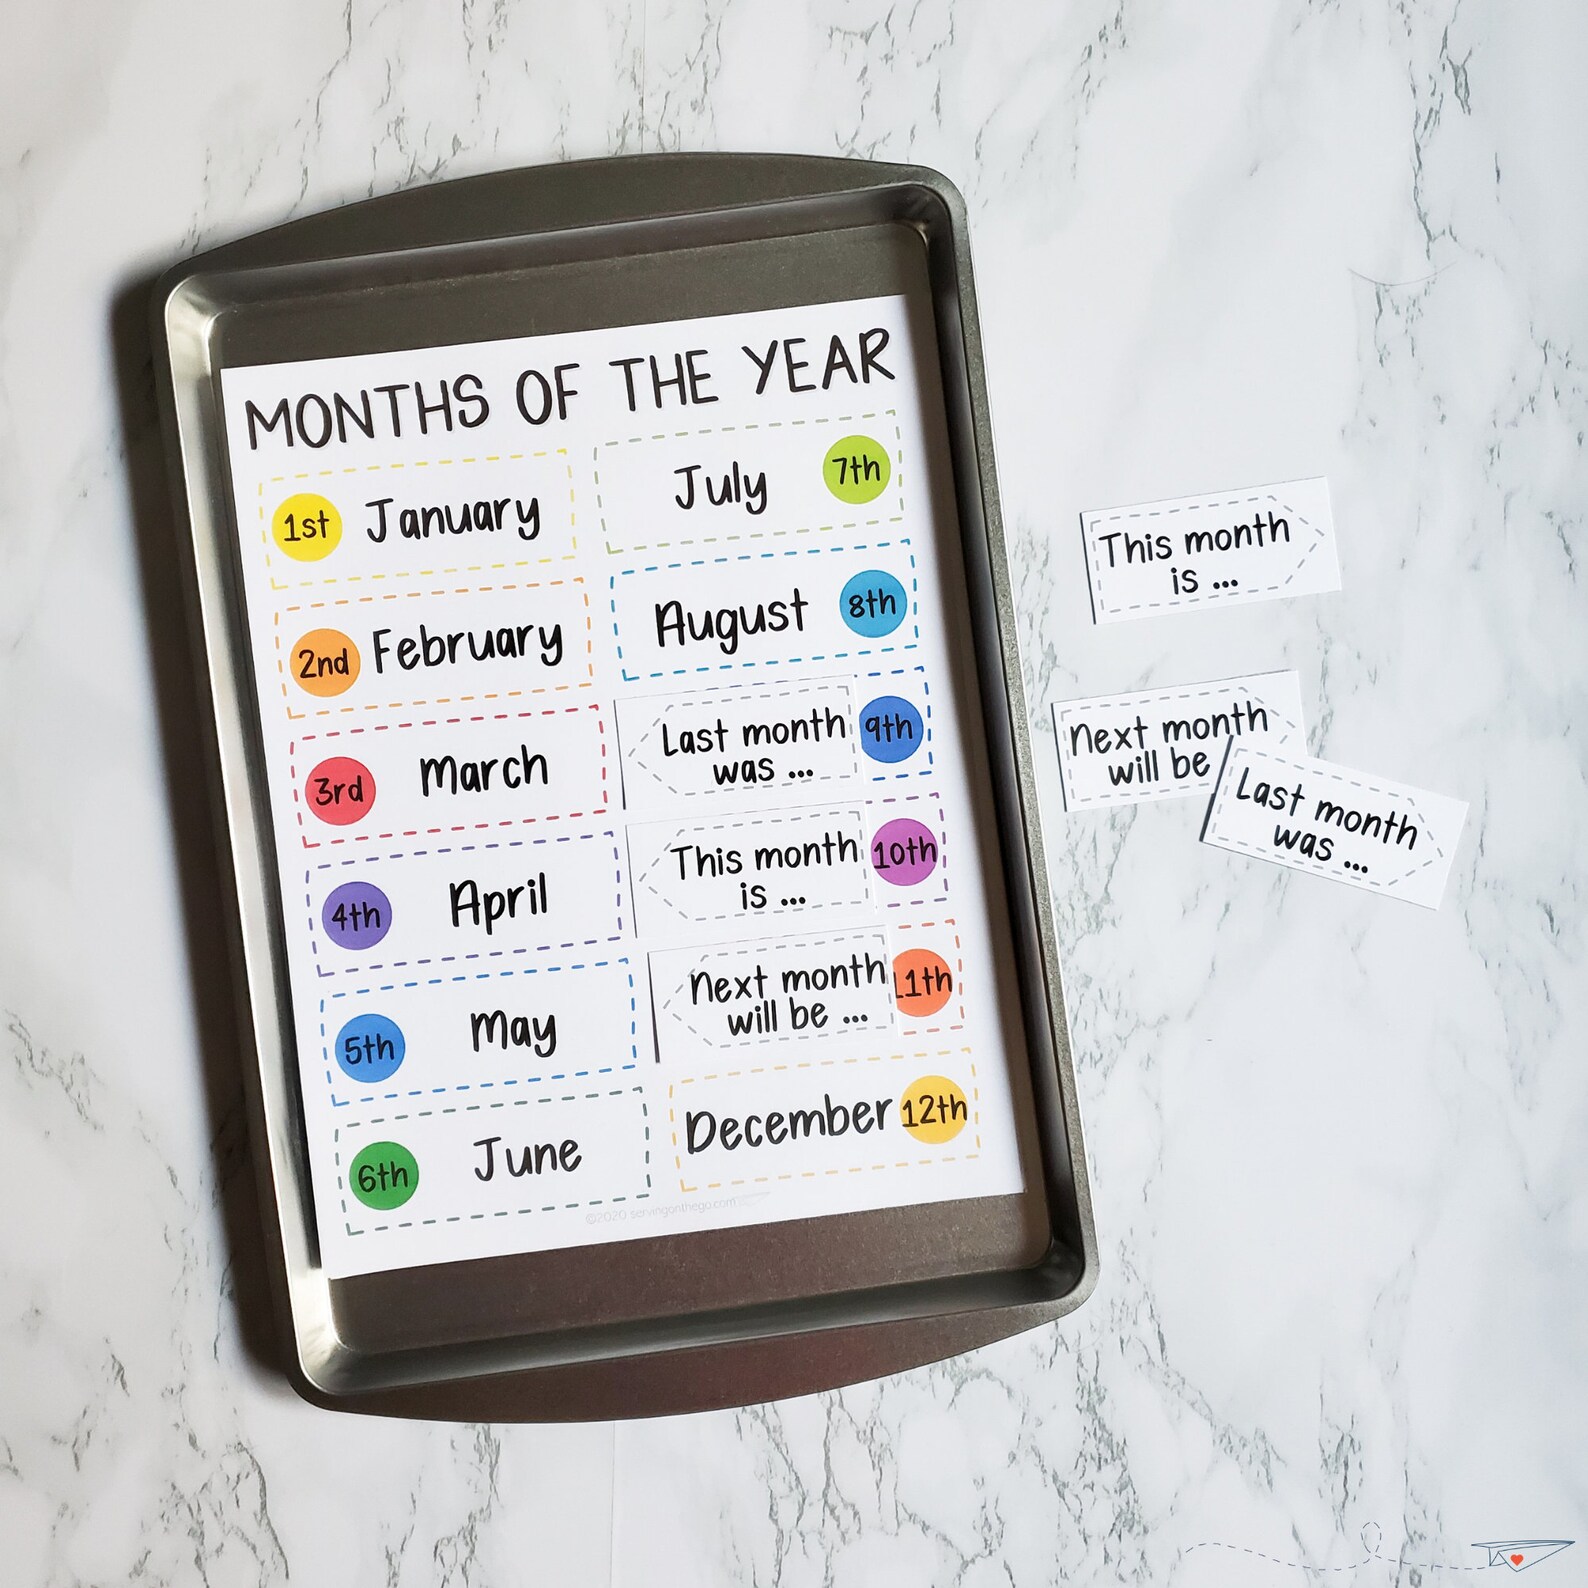 MONTHS OF THE YEAR
1st January
2nd February
3rd March
4th April
5th May
6th June
July 7th
August 8th
Last month
was ...
9th
This month
is ...
10th
Next month
will be ...
11th
December 12th
©2020 servingonthego.com
This month
is ...
Next month
will be
Last month
was ...